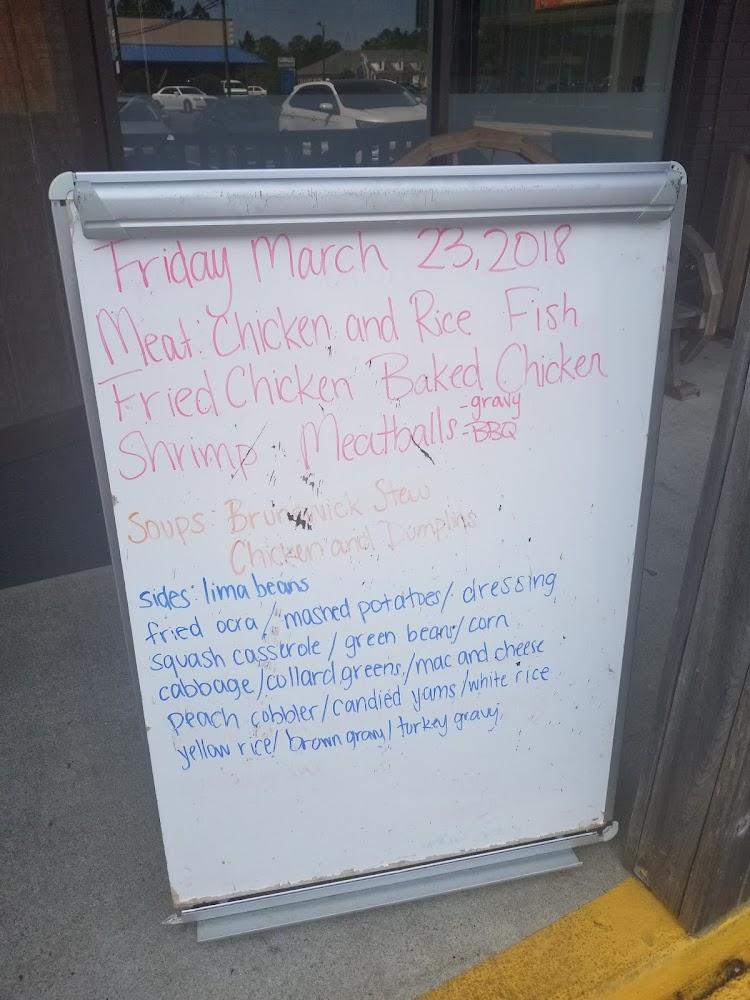 Friday March 23, 2018
Meat: Chicken and Rice Fish
Fried Chicken Baked Chicken
Shrimp Meatballs -gravy
-BBQ
Soups: Brunswick Stew
Chicken and Dumplins
sides: lima beans
fried ocra / mashed potatoes / dressing
squash casserole / green beans / corn
cabbage / collard greens / mac and cheese
peach cobbler / candied yams / white rice
yellow rice / brown gravy / turkey gravy